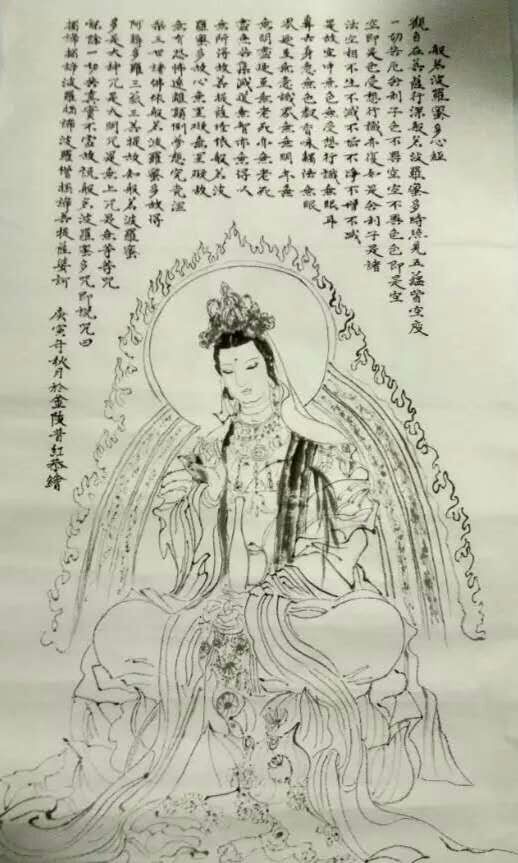 般若波羅蜜多心經
觀自在菩薩行深般若波羅蜜多時照見五蘊皆空度
一切苦厄舍利子色不異空空不異色色即是空
空即是色受想行識亦復如是舍利子是諸
法空相不生不滅不垢不淨不增不減
是故空中無色無受想行識無眼耳
鼻舌身意無色聲香味觸法無眼
界乃至無意識界無無明亦無
無明盡乃至無老死亦無老死
盡無苦集滅道無智亦無得以
無所得故菩提薩埵依般若波
羅蜜多故心無罣礙無罣礙故
無有恐怖遠離顛倒夢想究竟涅
槃三世諸佛依般若波羅蜜多故得
阿耨多羅三藐三菩提故知般若波羅蜜
多是大神咒是大明咒是無上咒是無等等咒
能除一切苦真實不虛故說般若波羅蜜多咒即說咒曰
揭諦揭諦波羅揭諦波羅僧揭諦菩提薩婆訶
庚寅年秋月於金陵紅恭繪